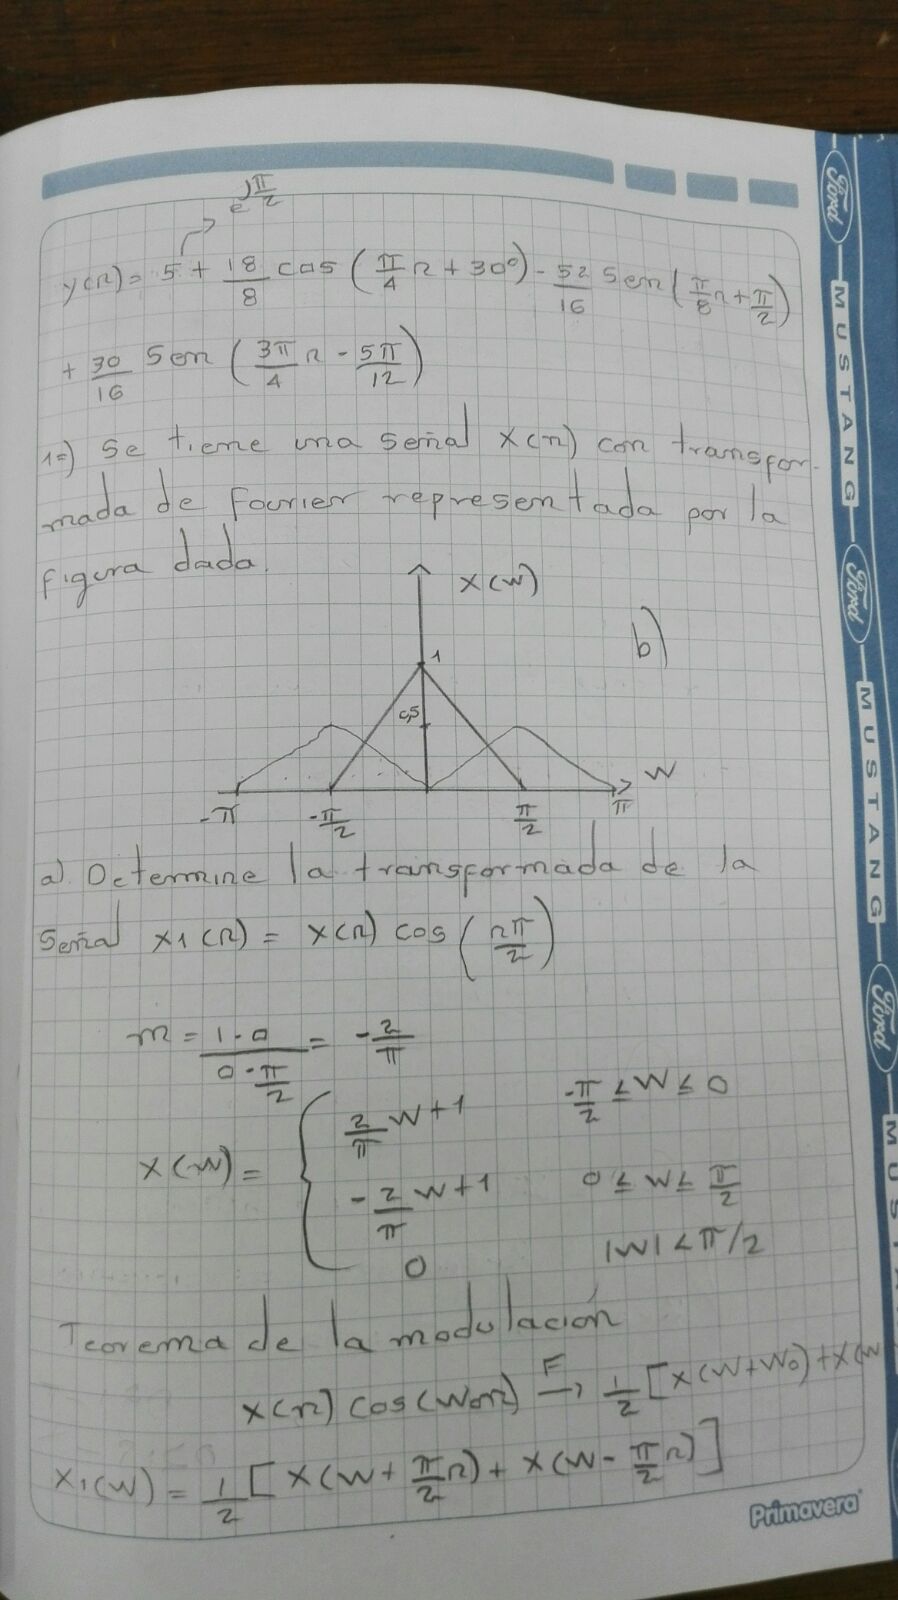 e^(jπ/2)
y(n) = 5 + 18/8 cos (π/4 n + 30°) - 52/16 Sen (π/8 n + π/2)
+ 30/16 Sen (3π/4 n - 5π/12)
1=) Se tiene una señal x(n) con transfor-
mada de Fourier representada por la
figura dada.
X(W)
b)
1
0,5
W
-π -π/2 π/2 π
a) Determine la transformada de la
Señal x1(n) = x(n) cos (nπ/2)
m = 1-0 / 0-π/2 = -2/π
X(W) = { 2/π W+1 -π/2 ≤ W ≤ 0
-2/π W+1 0 ≤ W ≤ π/2
0 |W| < π/2
Teorema de la modulación
x(n) cos(Won) F→ 1/2 [X(W+Wo) + X(W
X1(W) = 1/2 [X(W + π/2 n) + X(W - π/2 n)]
Primavera
Ford
MUSTANG
Ford
MUSTANG
Ford
MUST